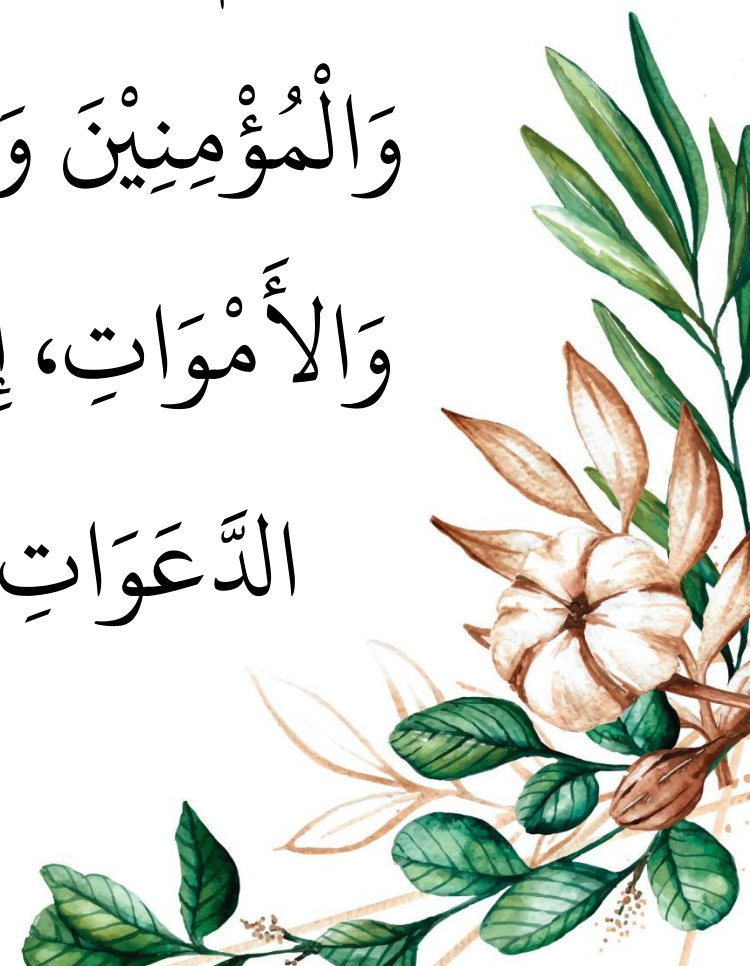 وَالْمُؤْمِنِيْنَ
وَالأَمْوَاتِ،
الدَّعَوَاتِ